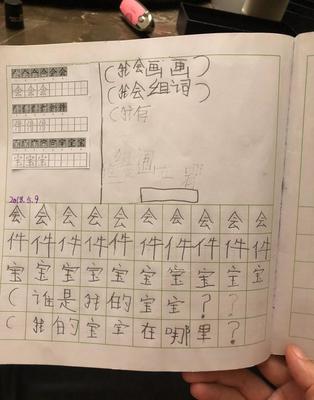 会会会
件件件
宝宝宝
(我会画画)
(我会组词)
(我有
2018.5.9
会会会会会会会会会会
件件件件件件件件件件
宝宝宝宝宝宝宝宝宝宝
(谁是我的宝宝??
(我的宝宝在哪里?